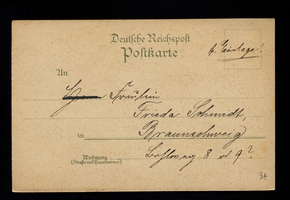 Deutsche Reichspost
Postkarte
Einlage!
An
Fräulein
Frieda Schmidt,
in Braunschweig
Wohnung
(Straße und Hausnummer)
8 od 9?